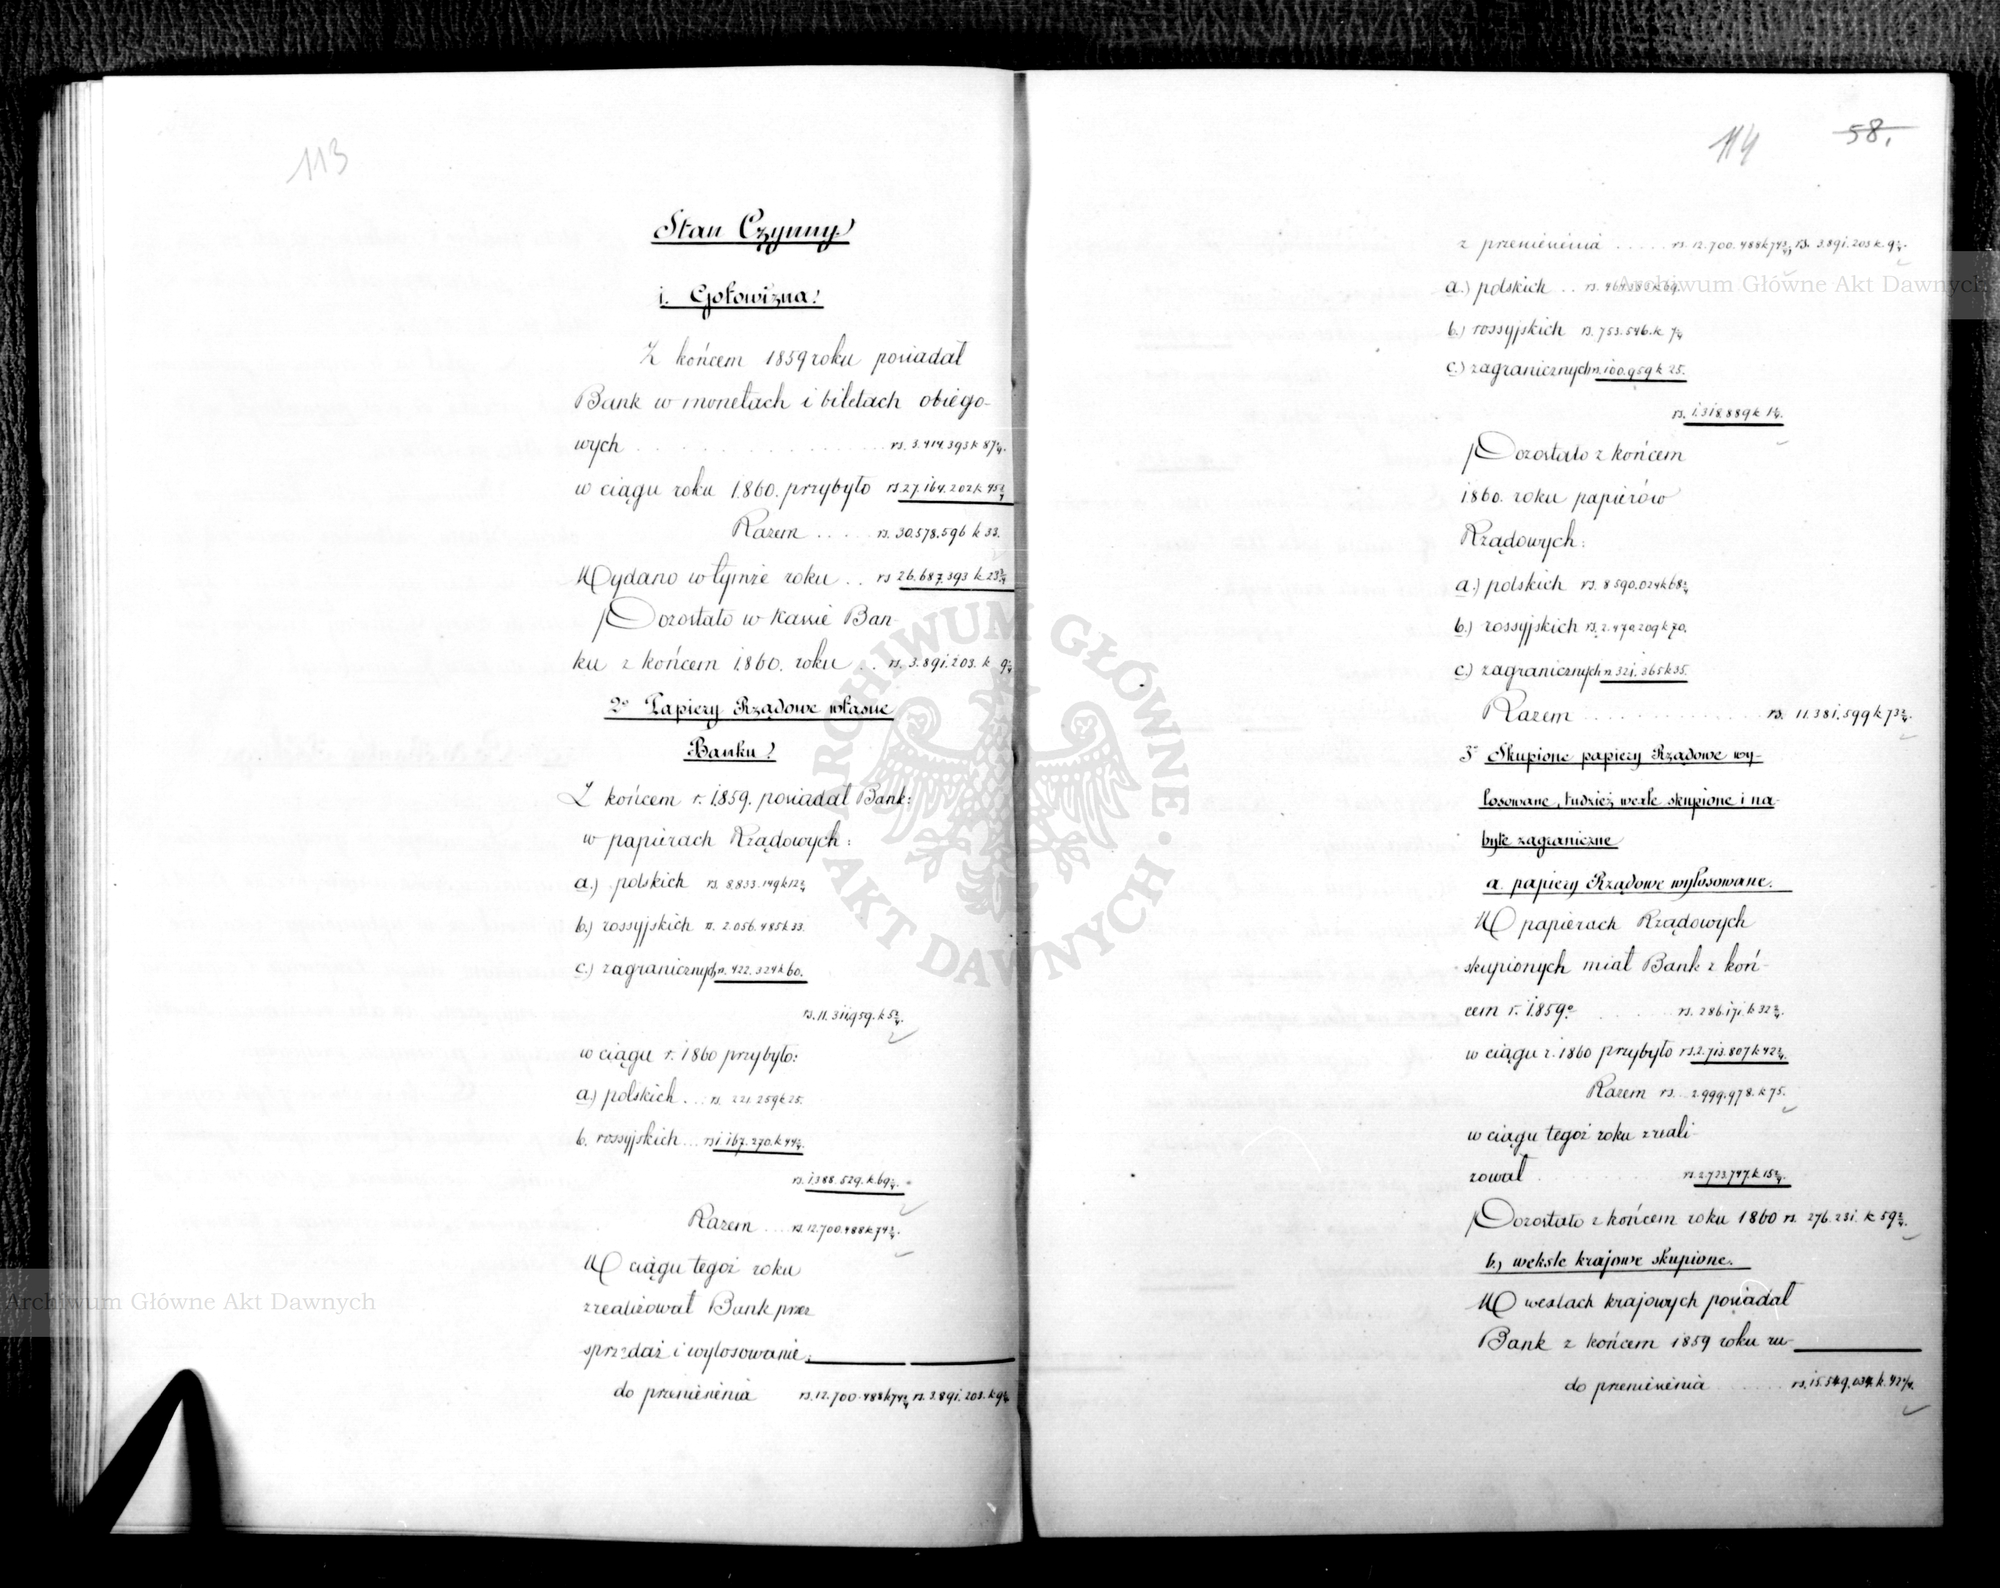 113
Stan Czynny
1. Gotowizna
Z końcem 1859 roku posiadał
Bank w monetach i biletach obiego-
wych rs. 3.414.393 k 87¾.
w ciągu roku 1860. przybyło rs 27.164.202 k 45¼
Razem rs. 30.578.596 k 33.
Wydano w tymże roku rs 26.687.393 k 23¾
Pozostało w Kassie Ban-
ku z końcem 1860. roku rs. 3.891.203. k 9¼
2° Papiery Rządowe własne
Banku
Z końcem r. 1859. posiadał Bank:
w papierach Rządowych:
a.) polskich rs 8.833.149 k 12¾
b.) rossyjskich rs. 2.056.485 k 33.
c.) zagranicznych rs. 422.324 k 60.
rs. 11.311.959. k 5¾.
w ciągu r. 1860 przybyło:
a) polskich rs. 221.259 k 25.
b. rossyjskich rs 1.167.270. k 44¾.
rs. 1.388.529. k. 69¾.
Razem rs. 12.700.488 k 74¾.
W ciągu tegoż roku
zrealizował Bank przez
sprzedaż i wylosowanie:
do przeniesienia rs. 12.700.488 k 74¾ rs. 3.891.203. k 9¼
114 58.
z przeniesienia rs. 12.700.488 k 74¾ rs. 3.891.203 k 9¼.
a.) polskich rs. 464.383 k 69.
b.) rossyjskich rs. 753.546. k 7¼
c.) zagranicznych rs. 100.959 k 25.
rs. 1.318.889 k 1¼.
Pozostało z końcem
1860. roku papierów
Rządowych:
a.) polskich rs. 8 590.024 k 68¾
b.) rossyjskich rs. 2.470.209 k 70.
c.) zagranicznych rs 321.365 k 35.
Razem rs. 11.381.599 k 73¾.
3° Skupione papiery Rządowe wy-
losowane, tudzież wexle skupione i na-
byte zagraniczne
a. papiery Rządowe wylosowane.
W papierach Rządowych
skupionych miał Bank z koń-
cem r. 1859° rs. 286.171. k 32¾.
w ciągu r. 1860 przybyło rs. 2.713.807 k 42¼.
Razem rs. 2.999.978. k 75.
w ciągu tegoż roku zreali-
zował rs. 2.723.747. k 15¾.
Pozostało z końcem roku 1860 rs. 276.231. k 59¾.
b.) weksle krajowe skupione.
W wexlach krajowych posiadał
Bank z końcem 1859 roku ru-
do przeniesienia rs. 15.549.034. k. 42¾.
ARCHIWUM GŁÓWNE AKT DAWNYCH
Archiwum Główne Akt Dawnych
Archiwum Główne Akt Dawnych